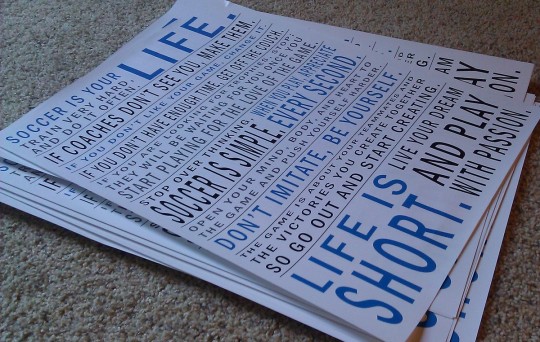 SOCCER IS YOUR
LIFE.
TRAIN VERY HARD
AND DO IT OFTEN.
IF COACHES DON'T SEE YOU, MAKE THEM.
IF YOU DON'T LOVE YOUR GAME, CHANGE IT.
IF YOU DON'T HAVE ENOUGH TIME, GET OFF THE COUCH.
IF YOU ARE LOOKING FOR
THEY WILL BE WAITING FOR YOU ONCE YOU
START PLAYING FOR THE LOVE OF THE GAME.
STOP OVER THINKING,
SOCCER IS SIMPLE.
WHEN YOU PLAY, APPRECIATE
EVERY SECOND
OPEN YOUR MIND, BODY, AND HEART TO
THE GAME AND PUSH YOURSELF HARDER.
DON'T IMITATE, BE YOURSELF.
THE GAME IS ABOUT YOUR TEAMMATES AND
THE VICTORIES YOU CREATE TOGETHER
SO GO OUT AND START CREATING.
LIFE IS
SHORT.
LIVE YOUR DREAM
AND PLAY
WITH PASSION.
ER
G.
AM
AY
ON.